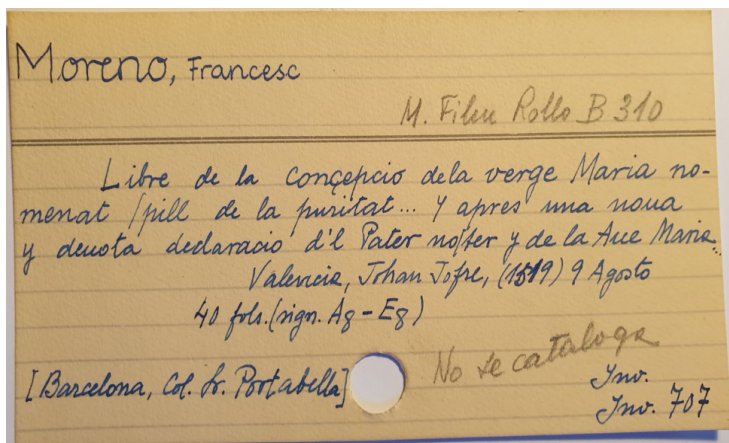 Moreno, Francesc
M. Film Rollo B 310
Libre de la conçepcio dela verge Maria no-
menat ſpill de la puritat... Y apres una noua
y deuota declaracio d'l Pater noſter y de la Aue Maria...
Valencia, Johan Jofre, (1519) 9 Agosto
40 fols. (sign. A8 - E8)
No se cataloga
[Barcelona, Col. Sr. Portabella]
Inv.
Inv. 707